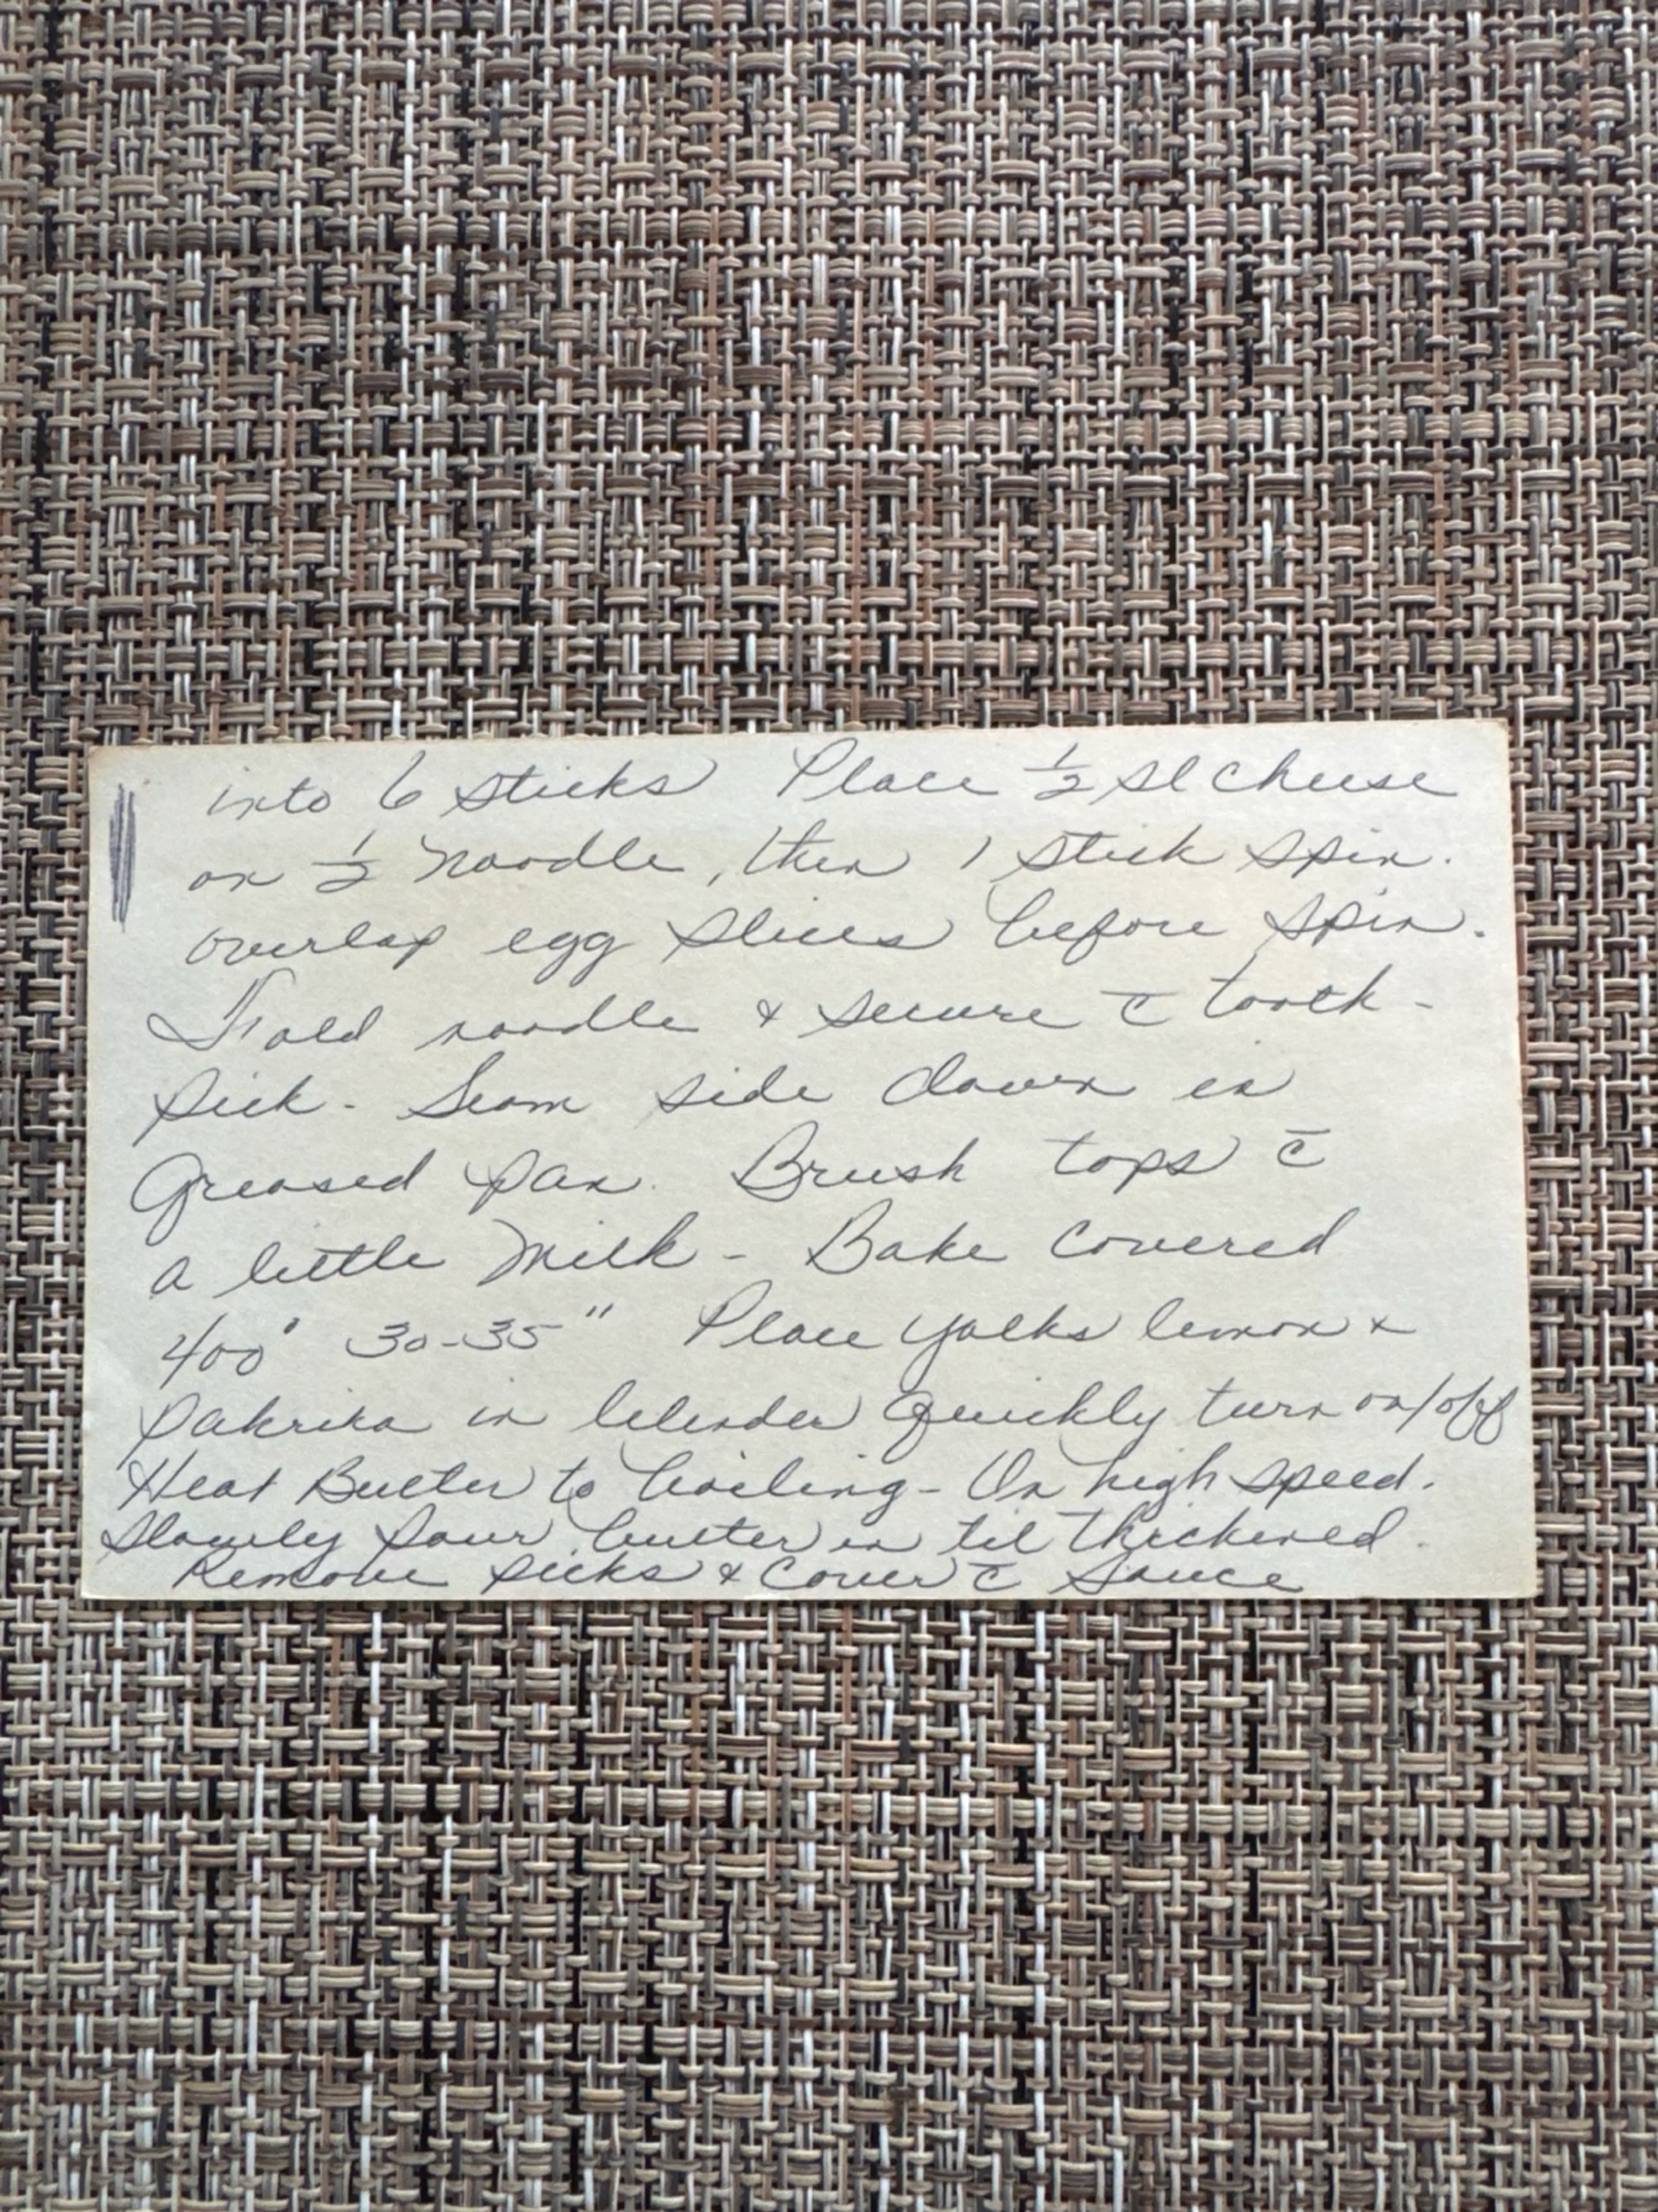 into 6 sticks Place ½ sl cheese
on ½ noodle, then 1 stick spin.
overlap egg slices before spin.
Fold noodle & secure c̄ tooth-
pick. Seam side down in
Greased pan. Brush tops c̄
a little milk - Bake covered
400° 30-35" Place yolks lemon &
pakrika in blender quickly turn on/off
Heat Butter to boiling - On high speed.
Slowly pour butter in til thickened.
Remove picks & cover c̄ sauce